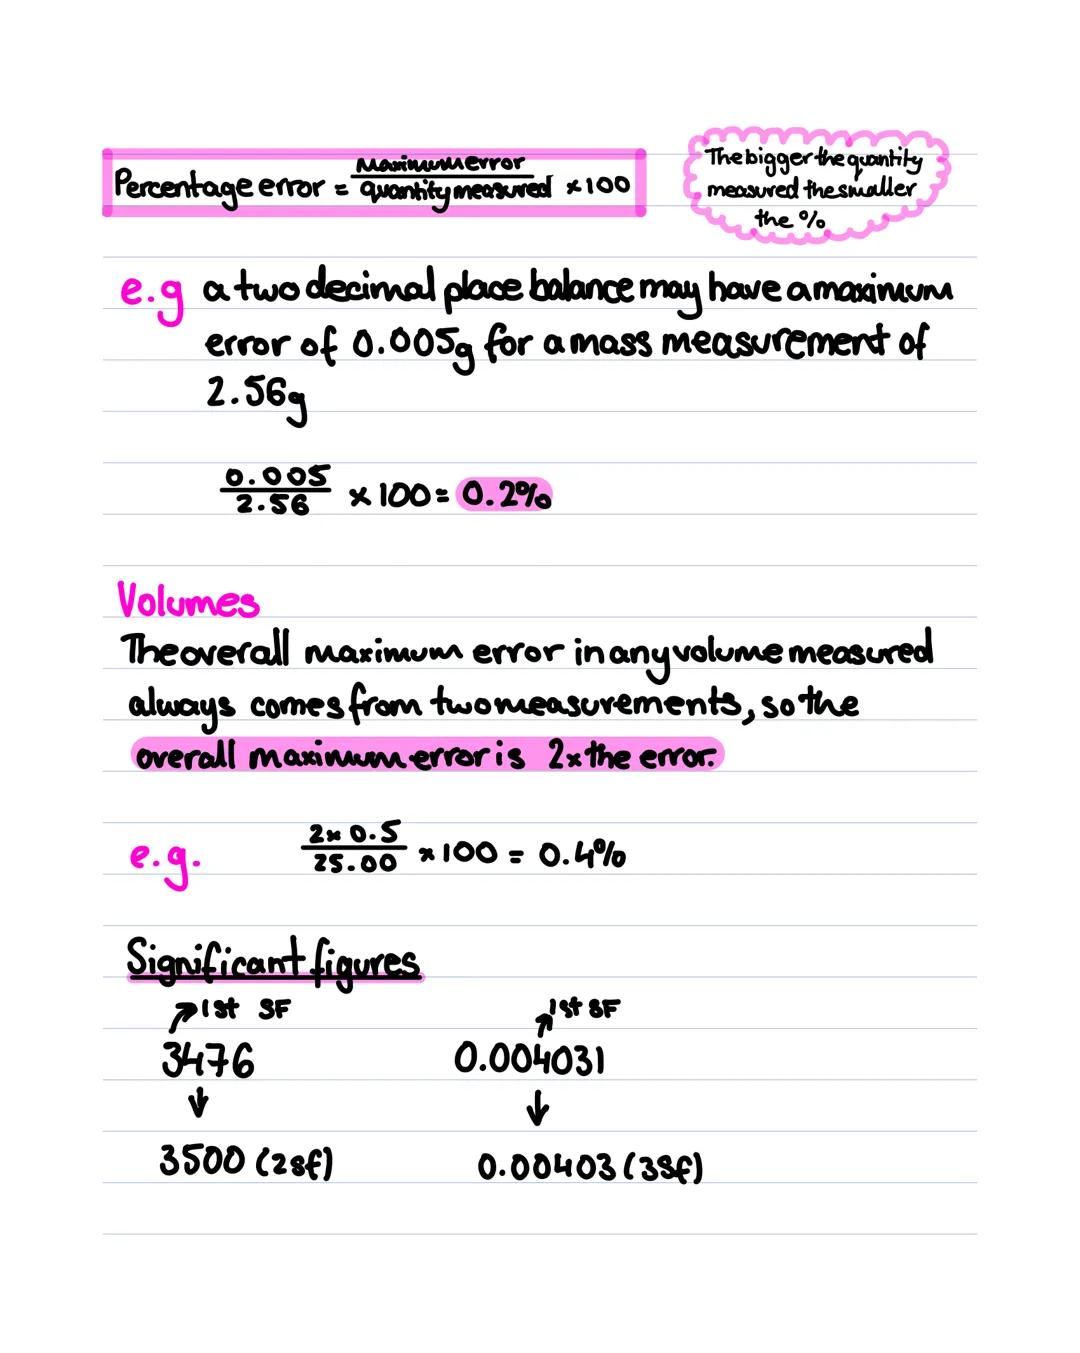 Percentage error = Maximum error / quantity measured × 100
The bigger the quantity
measured the smaller
the %
e.g a two decimal place balance may have a maximum
error of 0.005g for a mass measurement of
2.56g
0.005 / 2.56 × 100 = 0.2%
Volumes
The overall maximum error in any volume measured
always comes from two measurements, so the
overall maximum error is 2x the error.
e.g. 2 × 0.5 / 25.00 × 100 = 0.4%
Significant figures
1st SF 1st SF
3476 0.004031
3500 (2sf) 0.00403 (3sf)